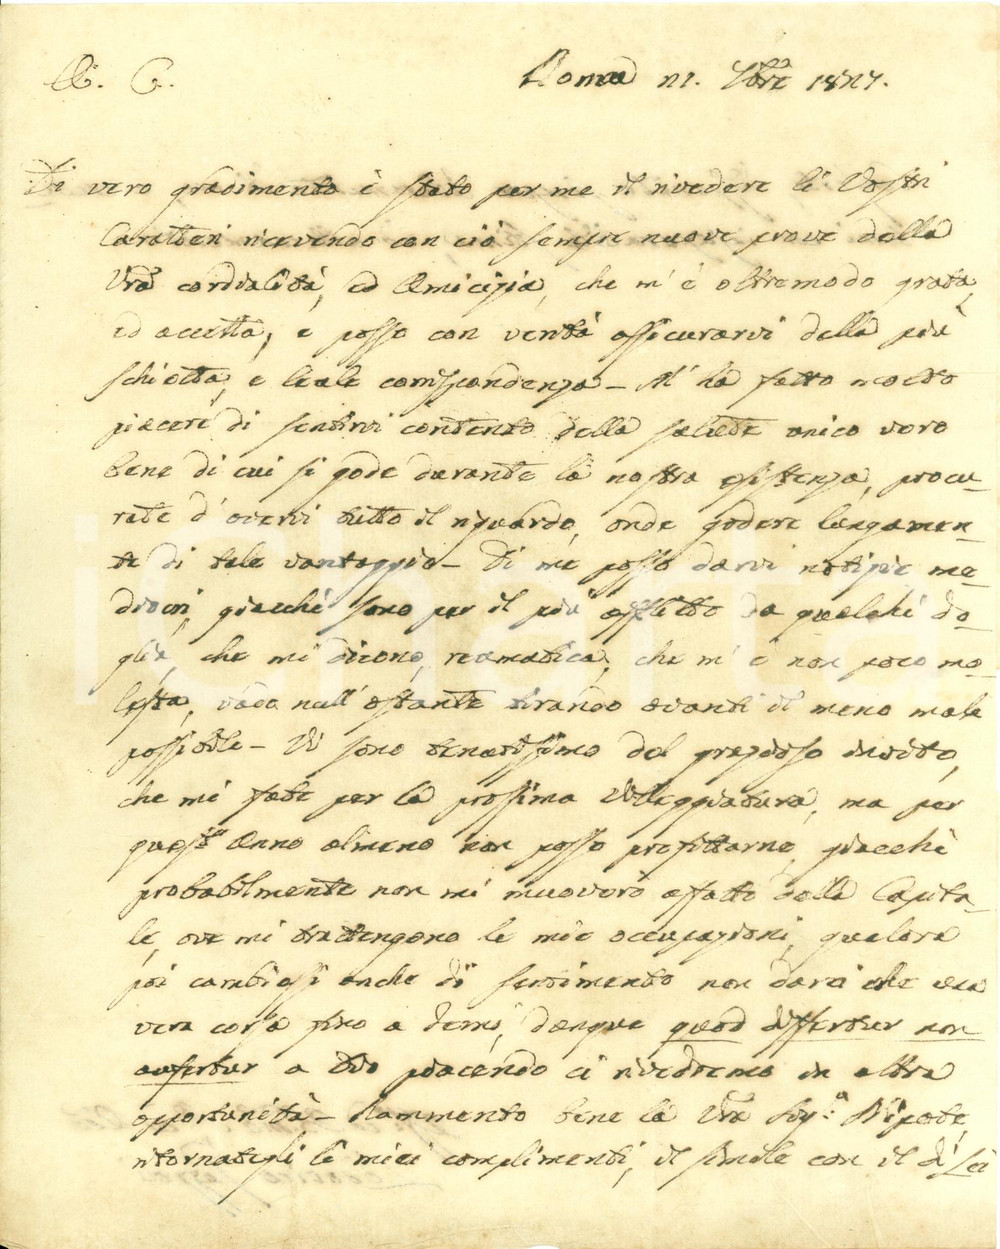 A. C.
Roma 21. 7bre 1827.
Di vero gradimento è stato per me il rivedere li Vostri
Caratteri ricevendo con ciò sempre nuove prove della
Vrã cordialità, ed Amicizia, che m'è oltremodo grata,
ed accetta, e posso con verità assicurarvi della più
schietta, e leale corrispondenza - M'hà fatto molto
piacere di sentirvi contento della salute unico vero
bene di cui si gode durante la nostra esistenza, procu-
rate d'avervi tutto il riguardo, onde godere lungamen-
te di tale vantaggio - Di me posso darvi notizie me-
diocri, giacchè sono per il più afflitto da qualche do-
glia, che mi dicono, reumatica, che m'è non poco mo-
lesta, vado null'ostante tirando avanti il meno male
possibile - Vi sono tenutissimo del grazioso invito,
che mi fate per la prossima Villeggiatura, ma per
quest'Anno almeno non posso profittarne, giacchè
probabilmente non mi muoverò affatto dalla Capita-
le, ove mi trattengono le mie occupazioni, qualora
poi cambiassi anche di sentimento non darei che una
vera corsa fino a Terni, dunque quod differtur non
aufertur a Dio piacendo ci rivedremo in altra
opportunità - Rammento bene la Vrã Sigrã Nipote,
ritornategli li miei complimenti, il simile con il di Lei
iCharta